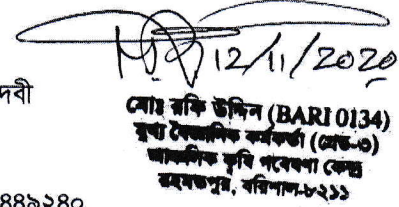 12/11/2020
দেবী
মোঃ রফি উদ্দিন (BARI 0134)
মুখ্য বৈজ্ঞানিক কর্মকর্তা (গ্রেড-৩)
আঞ্চলিক কৃষি গবেষণা কেন্দ্র
রহমতপুর, বরিশাল-৮২১১
৪৪৯২৪০